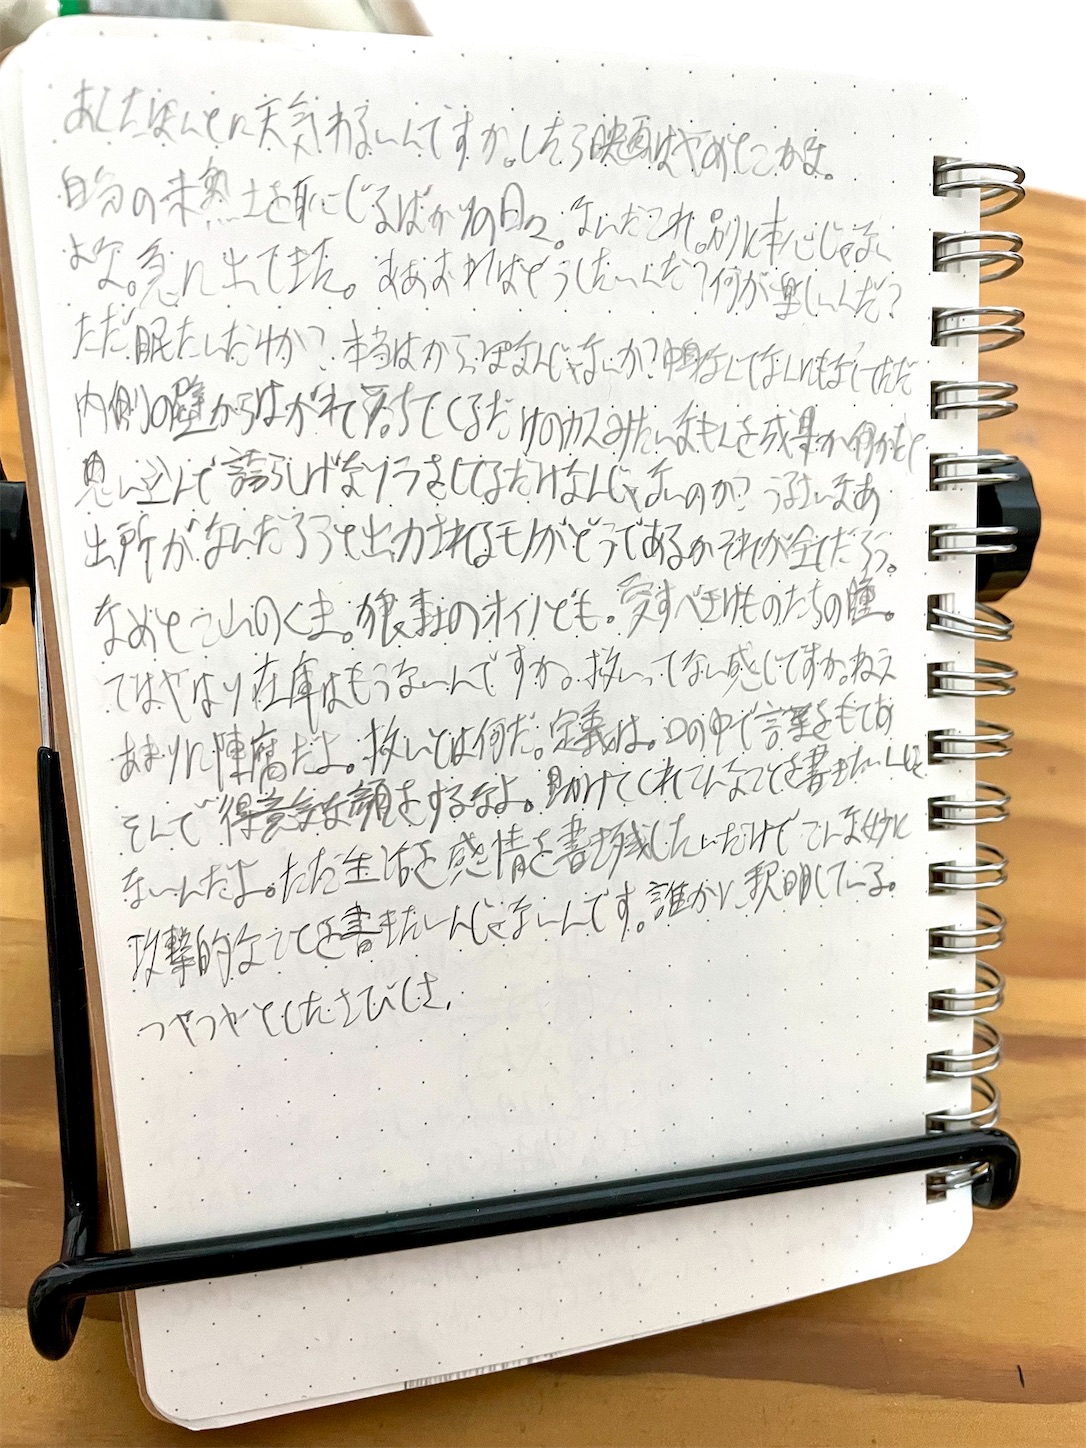 あしたほんとに天気わるいんですか。したら映画はやめとこかな。
自分の未熟さを恥じるばかりの日々。なんだこれ。別に本心じゃなく
よな。急に出てきた。まあおれはどうしたいんだ?何が楽しいんだ?
ただ眠たいだけか?本当はからっぽなんじゃないか?中身なんてなんにもなくてただ
内側の壁からはがれて落ちてくるだけのカスみたいなもんを成果か何かだと
思い込んで誇らしげなツラをしてるだけなんじゃないのか?うるさいなあ
出所がなんだろうと出力されるモノがどうであるかそれが全てだろう。
なめとこ山のくま。狼森のオイノども。愛すべきけものたちの瞳。
ではやはり在庫はもうないんですか。救いってない感じですか。ねえ
あまりに陳腐だよ。救いとは何だ。定義は。口の中で言葉をもてあ
そんで得意気な顔をするなよ。助けてくれてんなことを書きたいんじゃ
ないんだよ。ただ生活を感情を書き残したいだけでこんな妙に
攻撃的なことを書きたいんじゃないんです。誰かに釈明している。
つやつやとしたさびしさ。